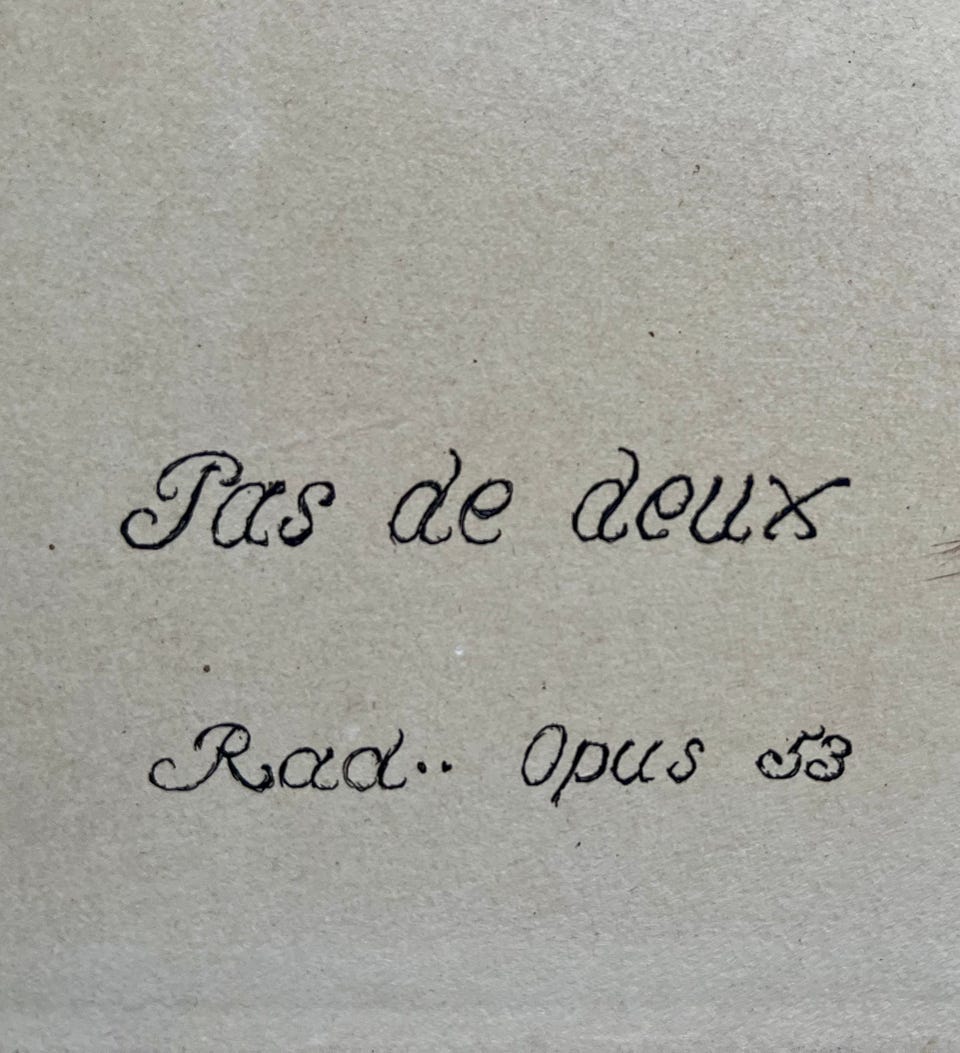 Pas de deux
Rad.. Opus 53